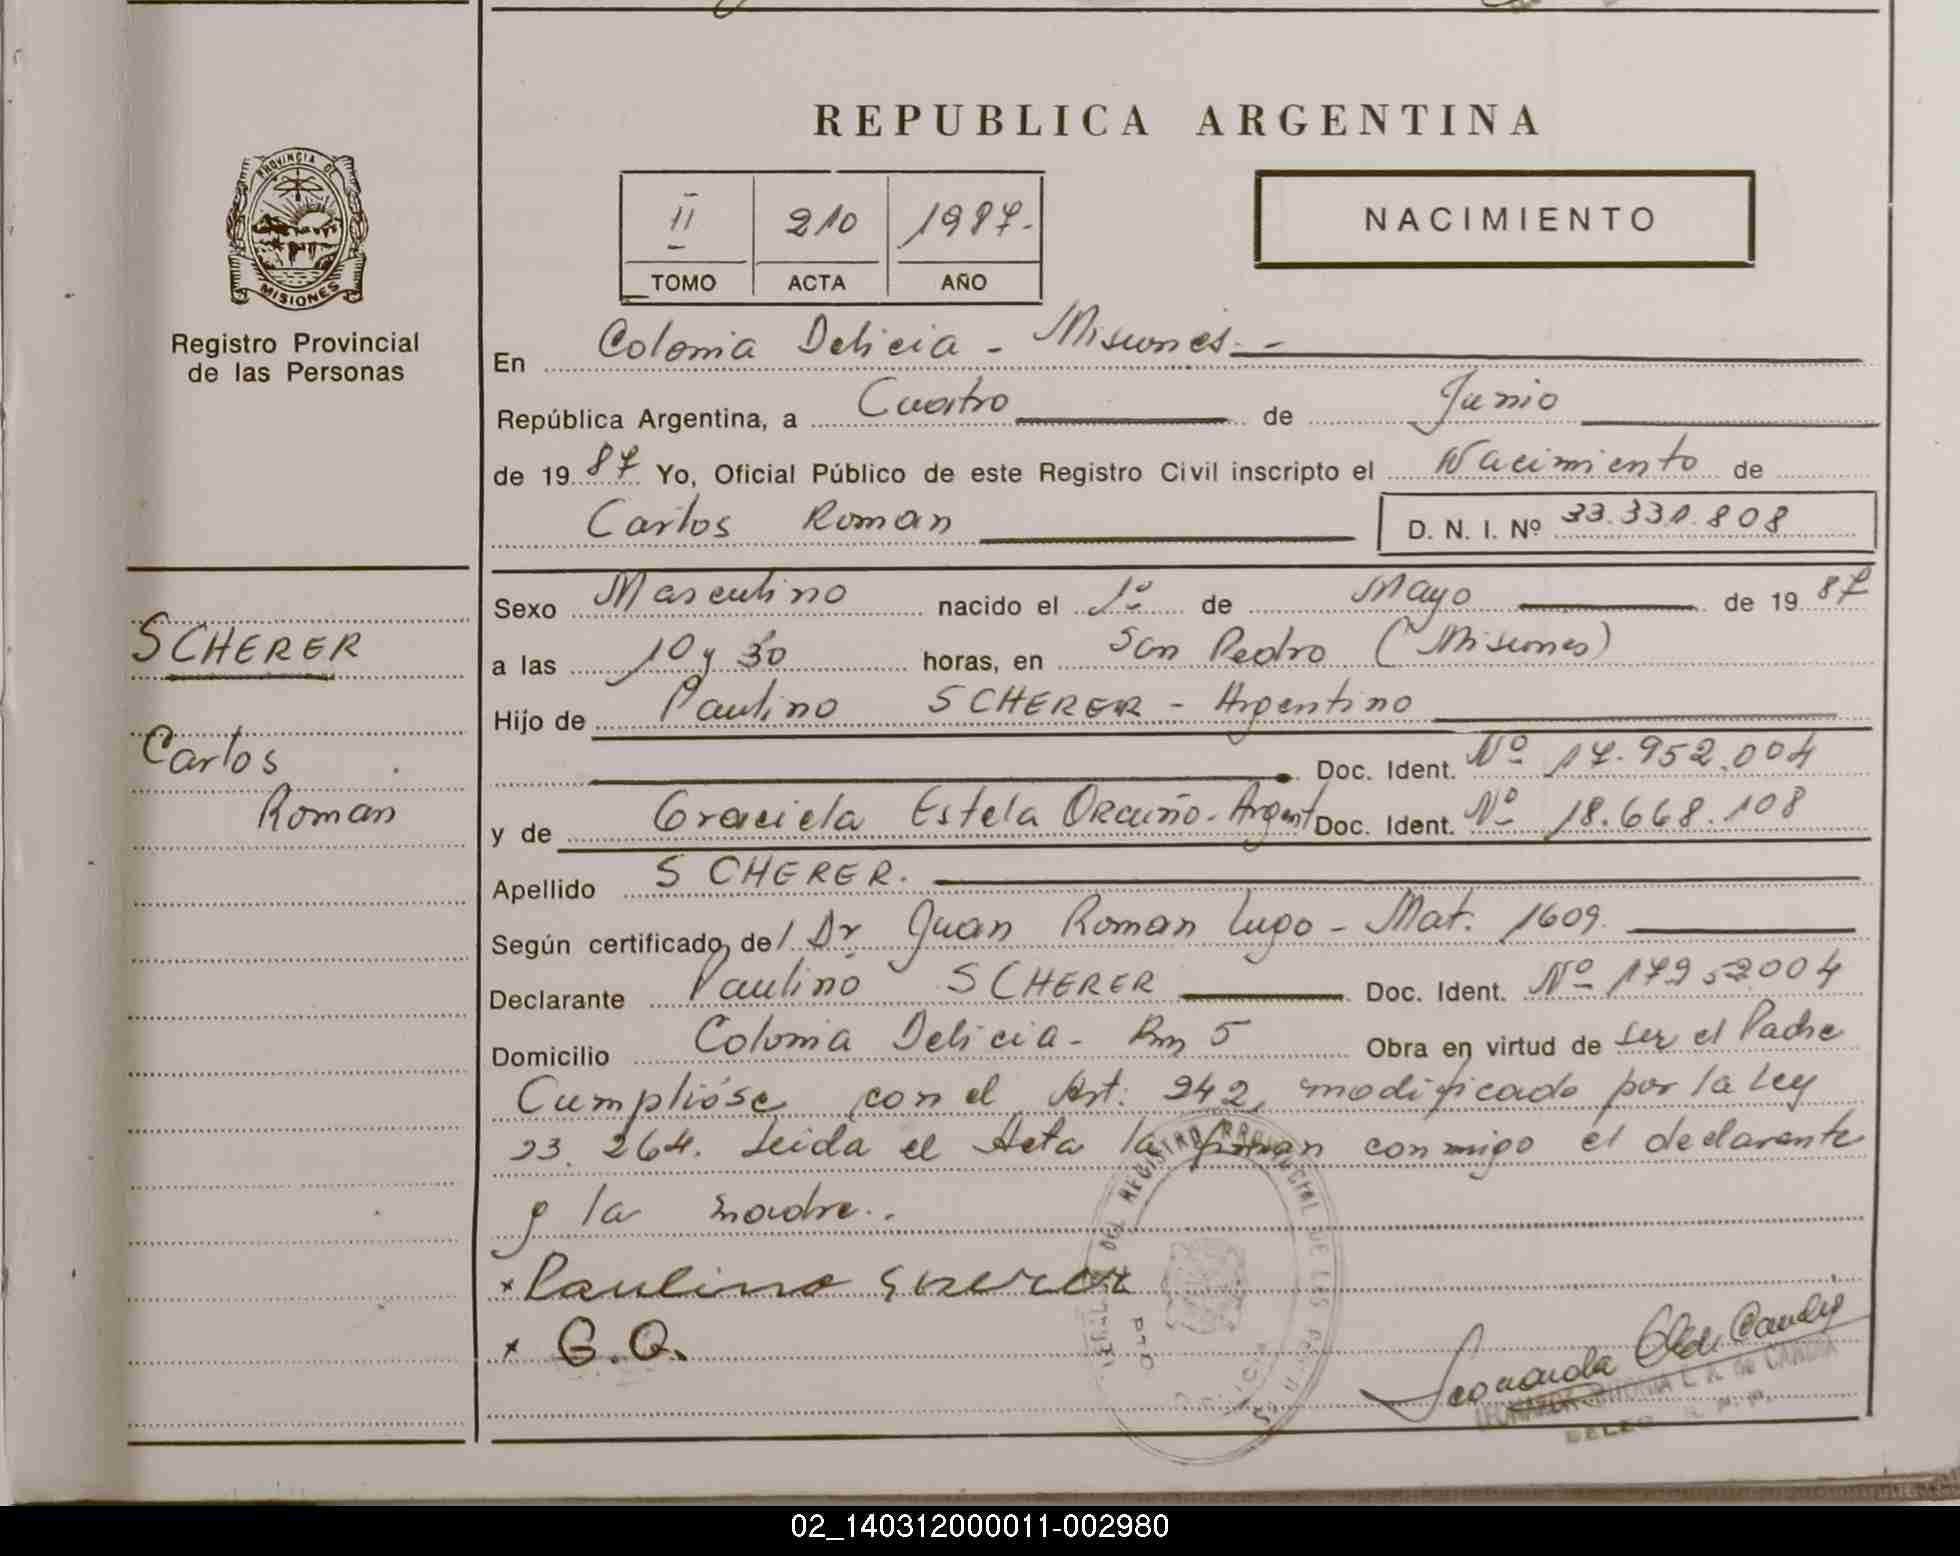 REPUBLICA ARGENTINA
PROVINCIA DE
MISIONES
Registro Provincial
de las Personas
II 210 1987.-
TOMO ACTA AÑO
NACIMIENTO
En Colonia Delicia - Misiones.-
República Argentina, a Cuatro de Junio
de 19 87 Yo, Oficial Público de este Registro Civil inscripto el Nacimiento de
Carlos Roman D. N. I. Nº 33.331.808
SCHERER
Carlos
Roman
Sexo Masculino nacido el 1º de Mayo de 19 87
a las 10 y 30 horas, en San Pedro (Misiones)
Hijo de Paulino SCHERER - Argentino
Doc. Ident. Nº 17.952.004
y de Graciela Estela Argent Doc. Ident. Nº 18.668.108
Apellido SCHERER.
Según certificado del Dr Juan Roman Lugo - Mat. 1609.
Declarante Paulino SCHERER Doc. Ident. Nº 17952004
Domicilio Colonia Delicia - Km 5 Obra en virtud de ser el Padre
Cumplióse con el Art. 242, modificado por la ley
23.264. Leida el Acta la firman conmigo el declarante
y la madre..
x Paulino
x G.O.
DEL REGISTRO PROVINCIAL DE LAS
Leonarda
02_140312000011-002980